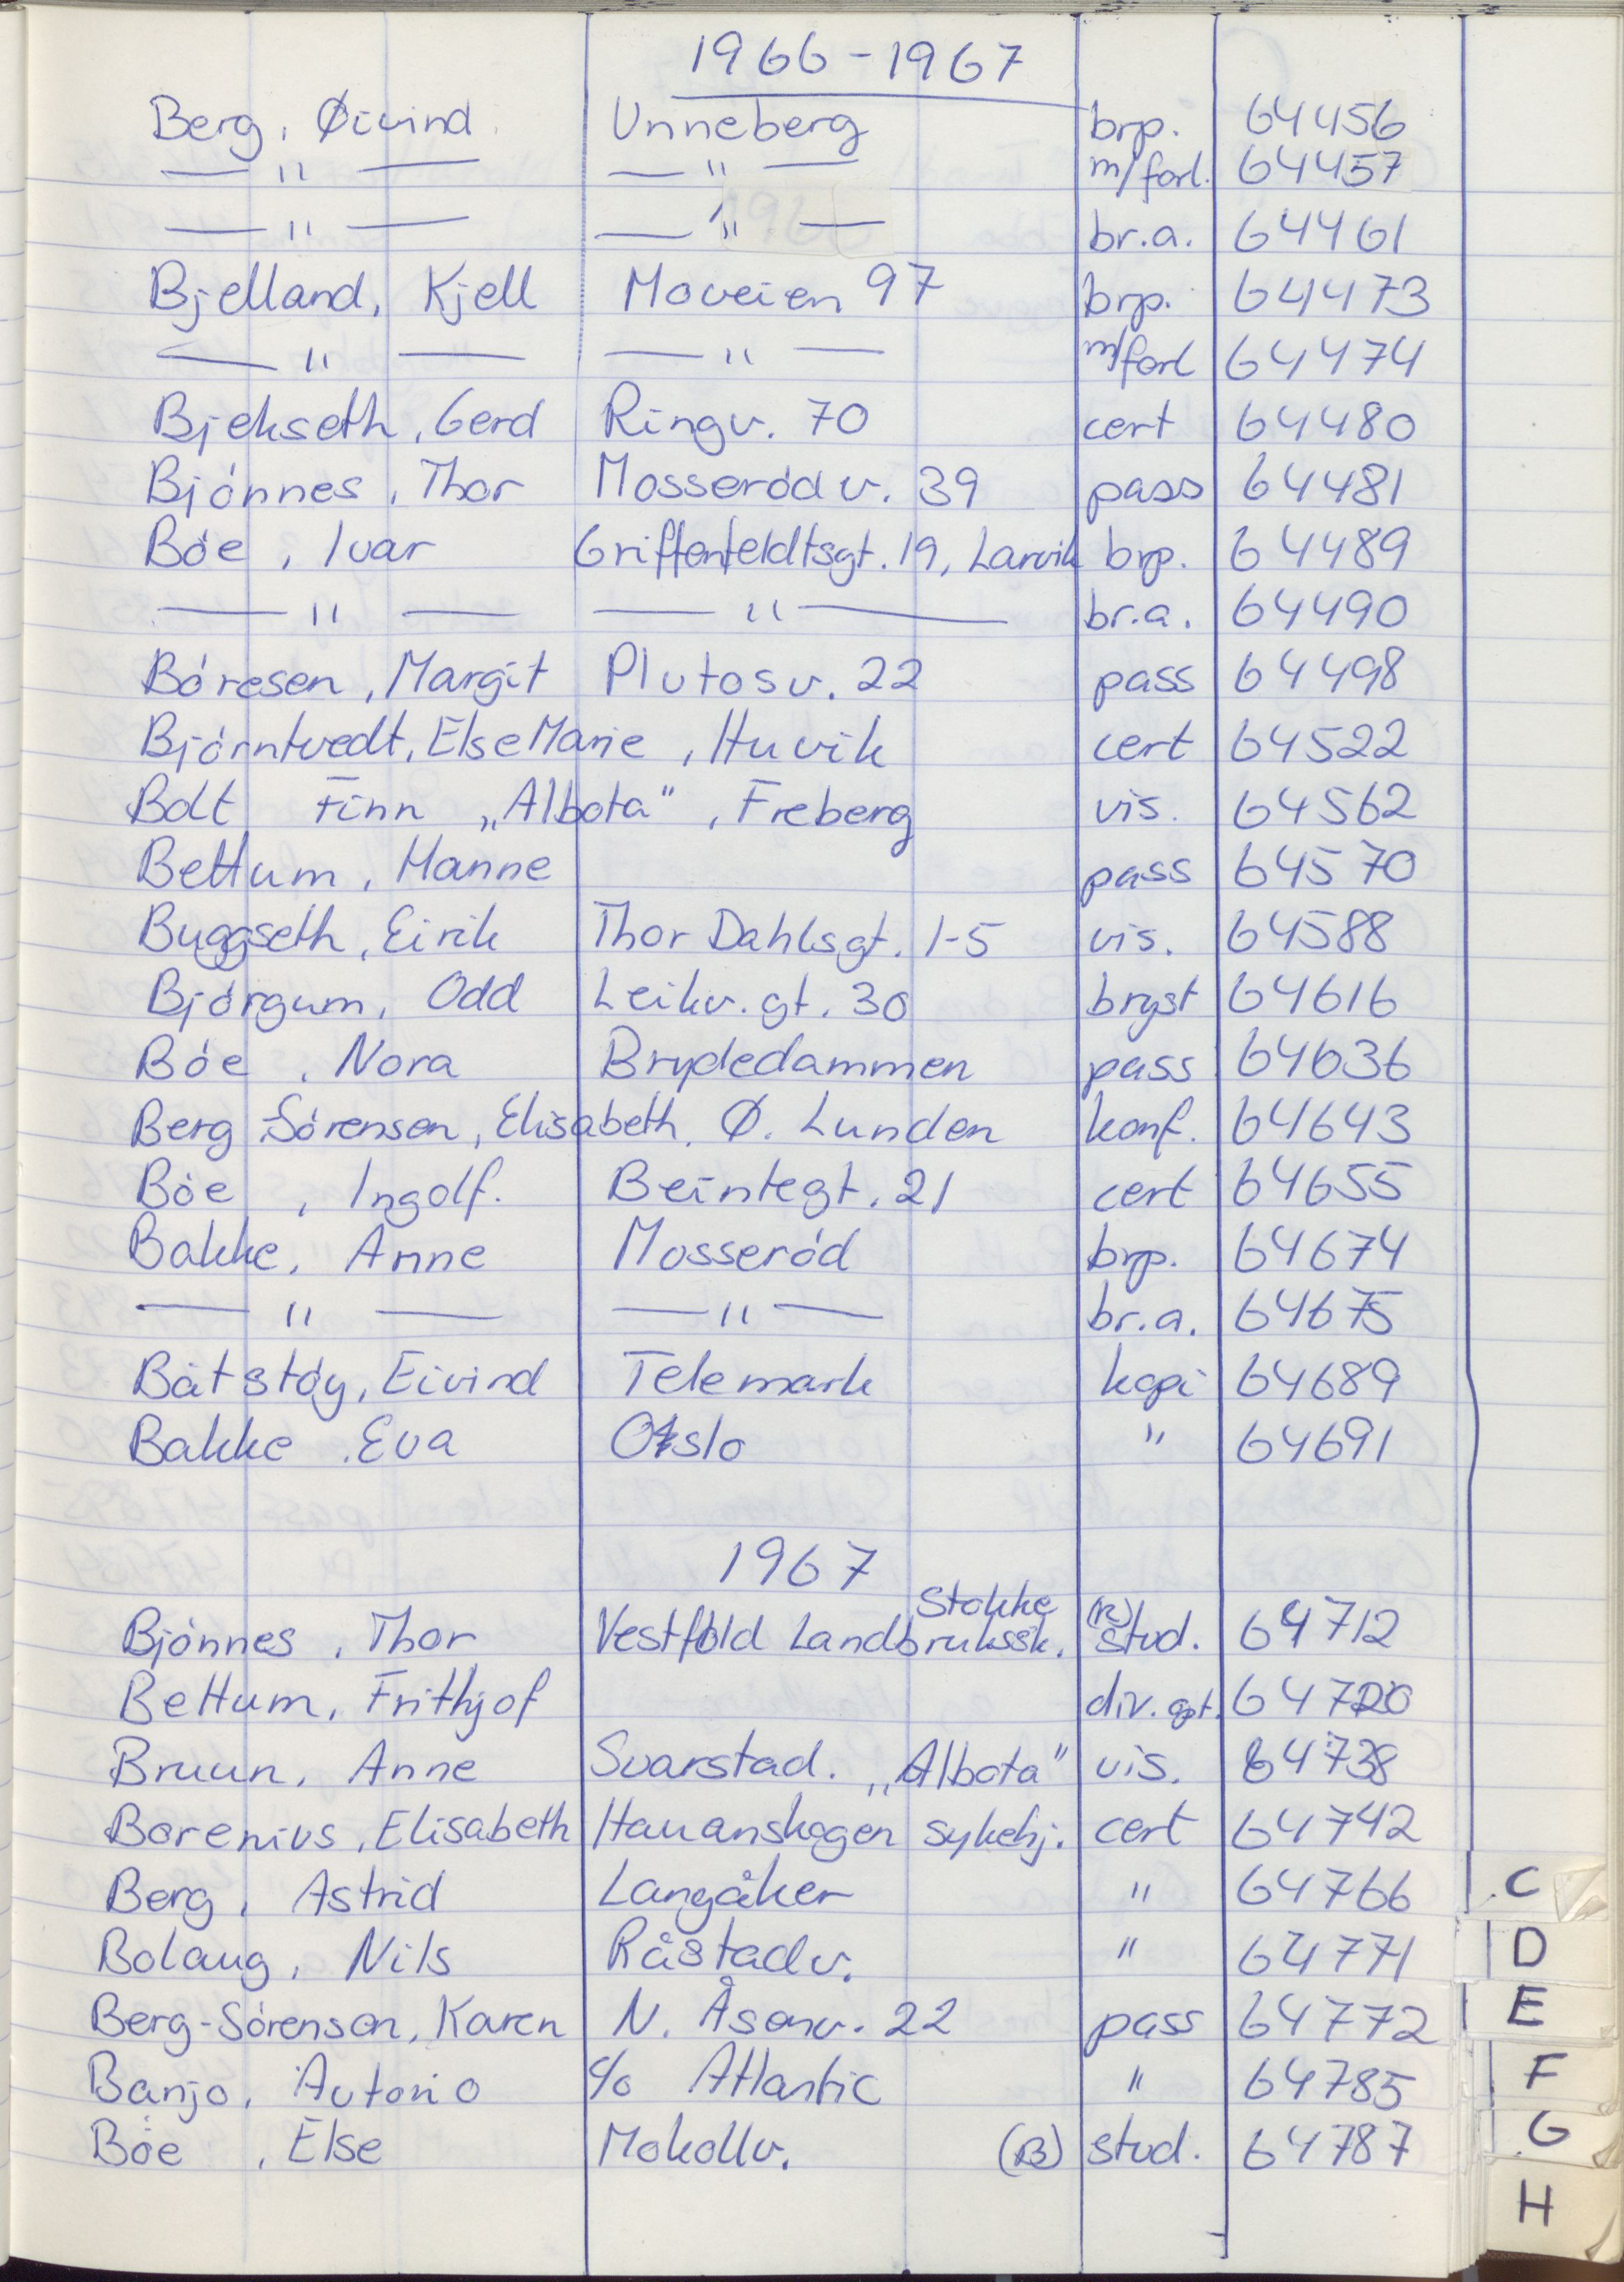 1966-1967
Berg, Øivind Unneberg brp. 64456
— " — — " — m/forl. 64457
— " — — " — br.a. 64461
Bjelland, Kjell Moveien 97 brp. 64473
— " — — " — m/forl 64474
Bjekseth, Gerd Ringv. 70 cert 64480
Bjónnes, Thor Mosseródv. 39 pass 64481
Bóe, Ivar Griffenfeldtsgt. 19, Larvik brp. 64489
— " — — " — br.a. 64490
Bóresen, Margit Plutosv. 22 pass 64498
Bjórntvedt, Else Marie, Huvik cert 64522
Bolt Finn „Albota", Freberg vis. 64562
Bettum, Hanne pass 64570
Buggseth, Eirik Thor Dahlsgt. 1-5 vis. 64588
Bjórgum, Odd Leikv. gt. 30 bryst 64616
Bóe, Nora Brydedammen pass 64636
Berg Sórensen, Elisabeth, Ø. Lunden konf. 64643
Bóe, Ingolf. Beintegt. 21 cert 64655
Bakke, Anne Mosseród brp. 64674
— " — — " — br.a. 64675
Båtstóy, Eivind Telemark kopi 64689
Bakke, Eva Oslo " 64691
1967
Stokke
Bjónnes, Thor Vestfold Landbrukssk. (R) stud. 64712
Bettum, Frithjof div. opt. 64720
Bruun, Anne Svarstad. „Albota" vis. 64738
Borenius, Elisabeth Hauanskogen sykehj. cert 64742
Berg, Astrid Langåker " 64766
C
Bolaug, Nils Råstadv. " 64771
D
Berg-Sórensen, Karen N. Åsenv. 22 pass 64772
E
Banjo, Autonio c/o Atlantic " 64785
F
Bóe, Else Mokollv. (B) stud. 64787
G
H